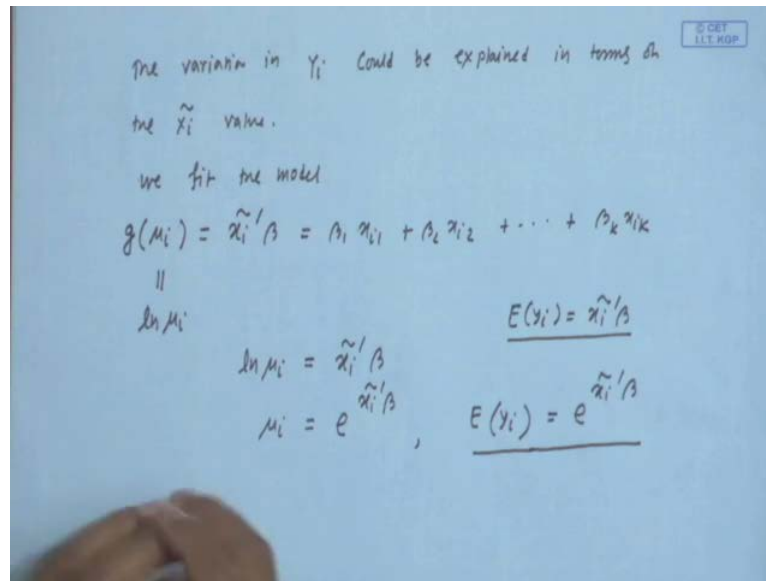 © CET
I.I.T. KGP
The variation in Yi could be explained in terms of
the x̃i value.
we fit the model
g(μi) = x̃i'β = β1 xi1 + β2 xi2 + ··· + βk xik
||
ln μi
E(yi) = x̃i'β
ln μi = x̃i'β
μi = e^x̃i'β , E(yi) = e^x̃i'β